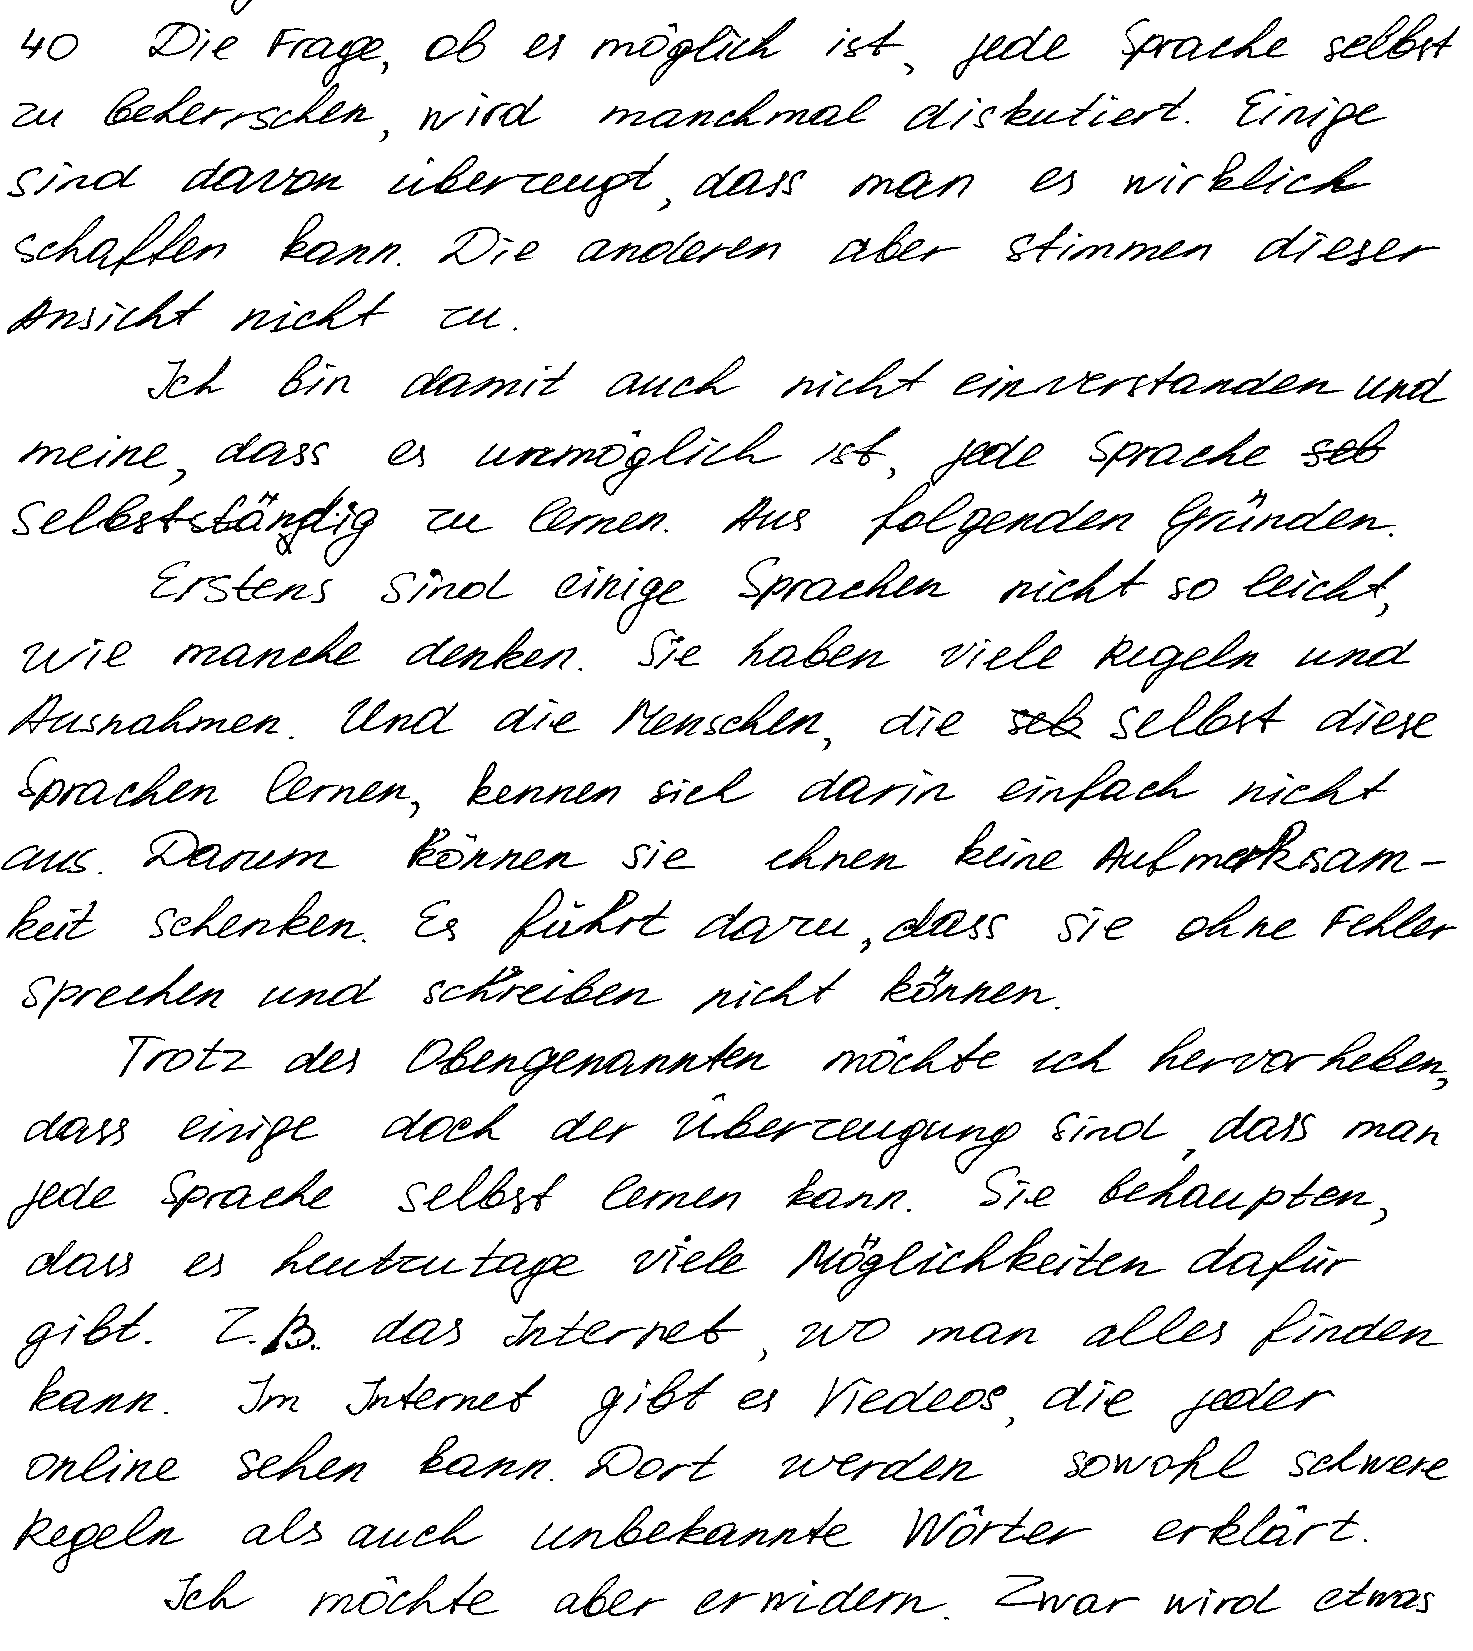 40 Die Frage, ob es möglich ist, jede Sprache selbst
zu beherrschen, wird manchmal diskutiert. Einige
sind davon überzeugt, dass man es wirklich
schaffen kann. Die anderen aber stimmen dieser
Ansicht nicht zu.
Ich bin damit auch nicht einverstanden und
meine, dass es unmöglich ist, jede Sprache seb
selbstständig zu lernen. Aus folgenden Gründen.
Erstens sind einige Sprachen nicht so leicht,
wie manche denken. Sie haben viele Regeln und
Ausnahmen. Und die Menschen, die seb selbst diese
Sprachen lernen, kennen sich darin einfach nicht
aus. Darum können sie ihnen keine Aufmerksam-
keit schenken. Es führt dazu, dass sie ohne Fehler
sprechen und schreiben nicht können.
Trotz des Obengenannten möchte ich hervorheben,
dass einige doch der Überzeugung sind, dass man
jede Sprache selbst lernen kann. Sie behaupten,
dass es heutzutage viele Möglichkeiten dafür
gibt. Z.B. das Internet, wo man alles finden
kann. Im Internet gibt es Viedeos, die jeder
online sehen kann. Dort werden sowohl schwere
Regeln als auch unbekannte Wörter erklärt.
Ich möchte aber erwidern. Zwar wird etwas